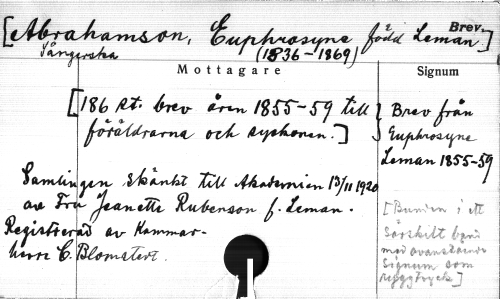 Brev.
[Abrahamson, Euphrosyne född Leman]
Sångerska (1836-1869)
Mottagare
Signum
[186 st. brev åren 1855-59 till
föräldrarna och syskonen.]
Brev från
Euphrosyne
Leman 1855-59
Samlingen skänkt till Akademien 13/11 1920
av Fru Jeanette Rubenson f. Leman.
Registrerad av Kammar-
herre C. Blomstert.
[Bunden i ett
särskilt band
med ovanstående
Signum som
ryggtryck]